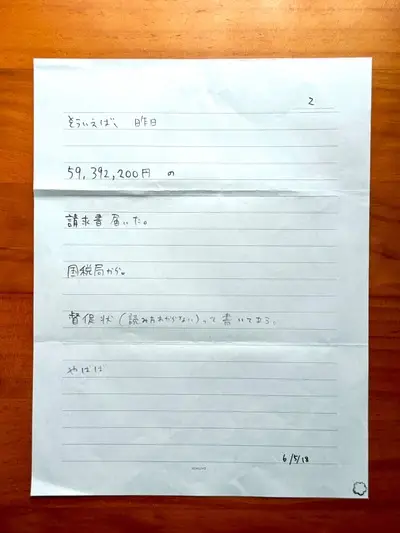 2
そういえば、昨日
59,392,200円 の
請求書 届いた。
国税局から。
督促状(読み方わからない)って 書いてある。
やばば
6/5/18